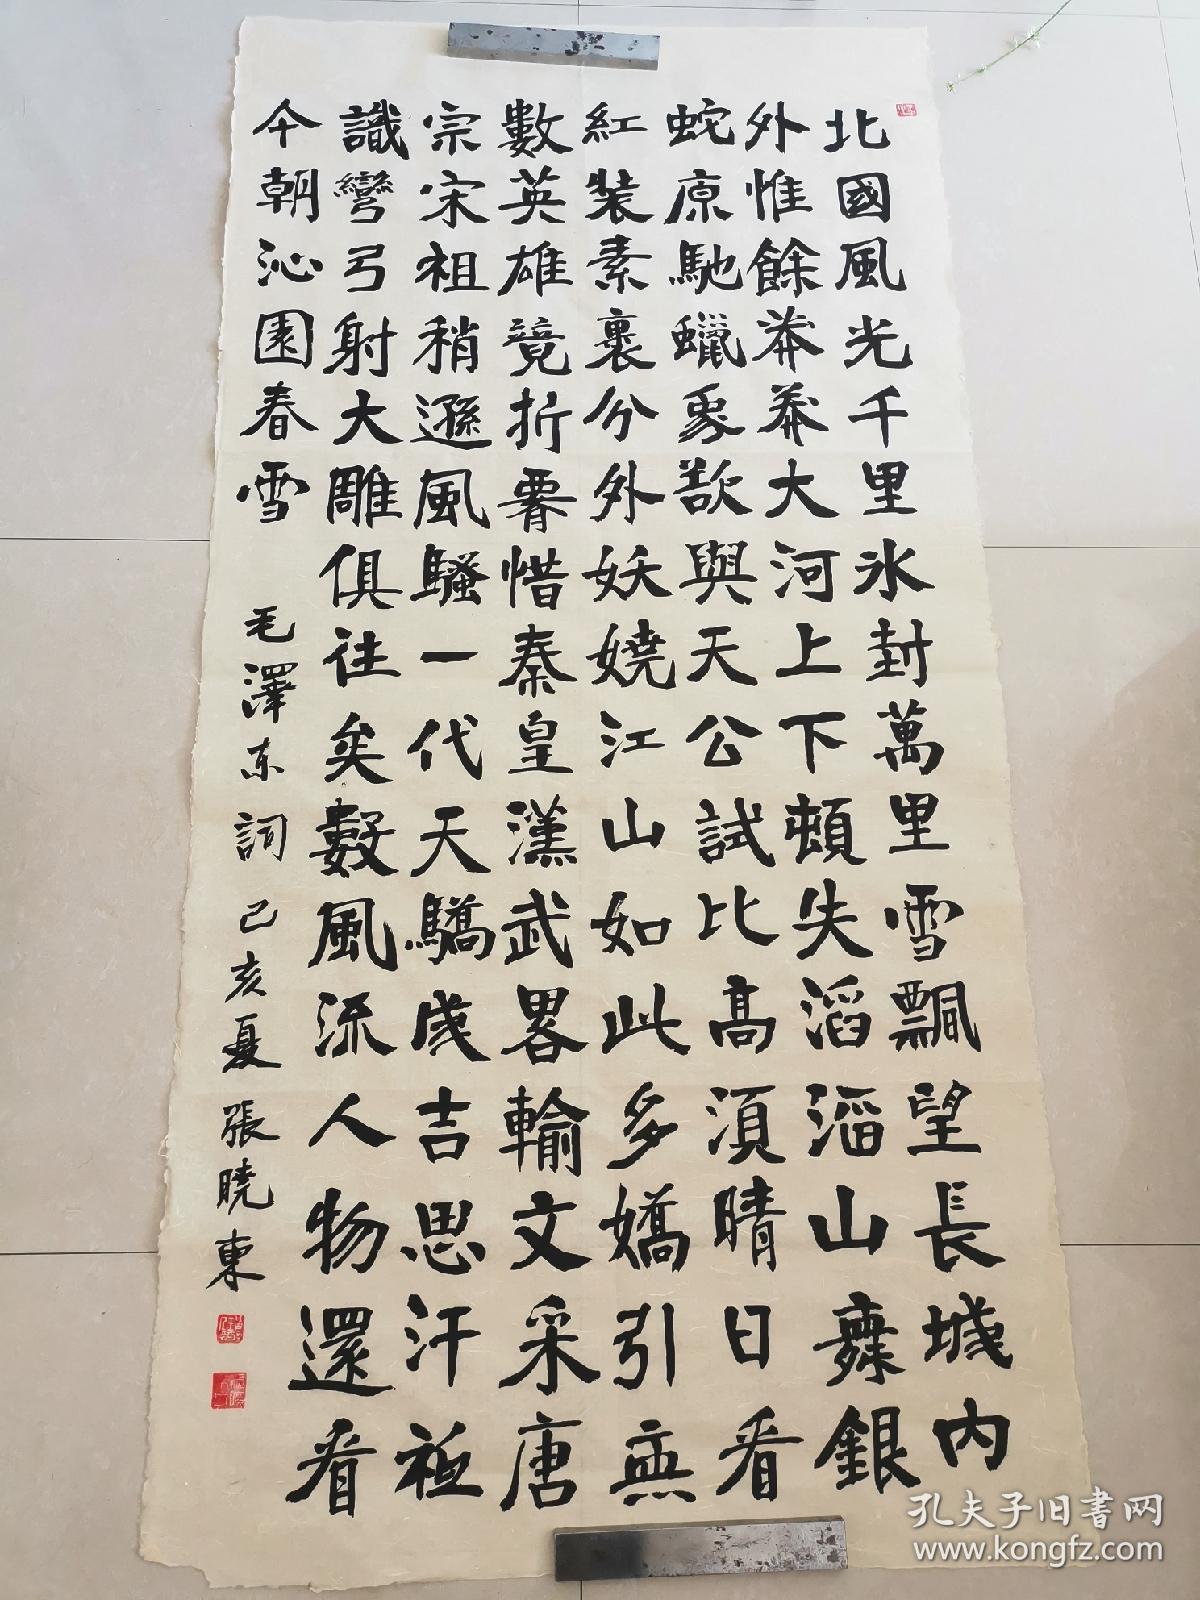 北國風光千里氷封萬里雪飄望長城内
外惟餘莽莽大河上下頓失滔滔山舞銀
蛇原馳蠟象欲與天公試比高須晴日看
紅装素裹分外妖嬈江山如此多嬌引無
數英雄競折腰惜秦皇漢武畧輸文采唐
宗宋祖稍遜風騷一代天驕成吉思汗祗
識彎弓射大雕俱往矣數風流人物還看
今朝沁園春雪 毛澤东詞 己亥夏 張曉東
孔夫子旧書网
www.kongfz.com